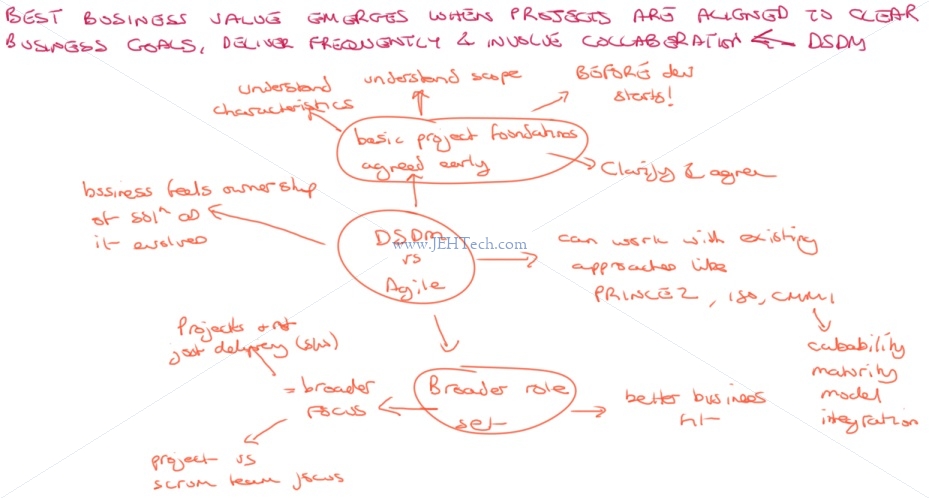 BEST BUSINESS VALUE EMERGES WHEN PROJECTS ARE ALIGNED TO CLEAR
BUSINESS GOALS, DELIVER FREQUENTLY & INVOLVE COLLABERATION ← DSDM
understand
characteristics
understand scope
BEFORE dev
starts!
basic project foundations
agreed early
Clarify & agree
business feels ownership
of sol^n as
it evolved
DSDM
vs
Agile
www.JEHTech.com
can work with existing
approaches like
PRINCE2, ISO, CMMI
cabability
maturity
model
integration
Projects & not
just delivery (s/w)
= broader
focus
Broader role
set
better business
fit
project vs
scrum team focus